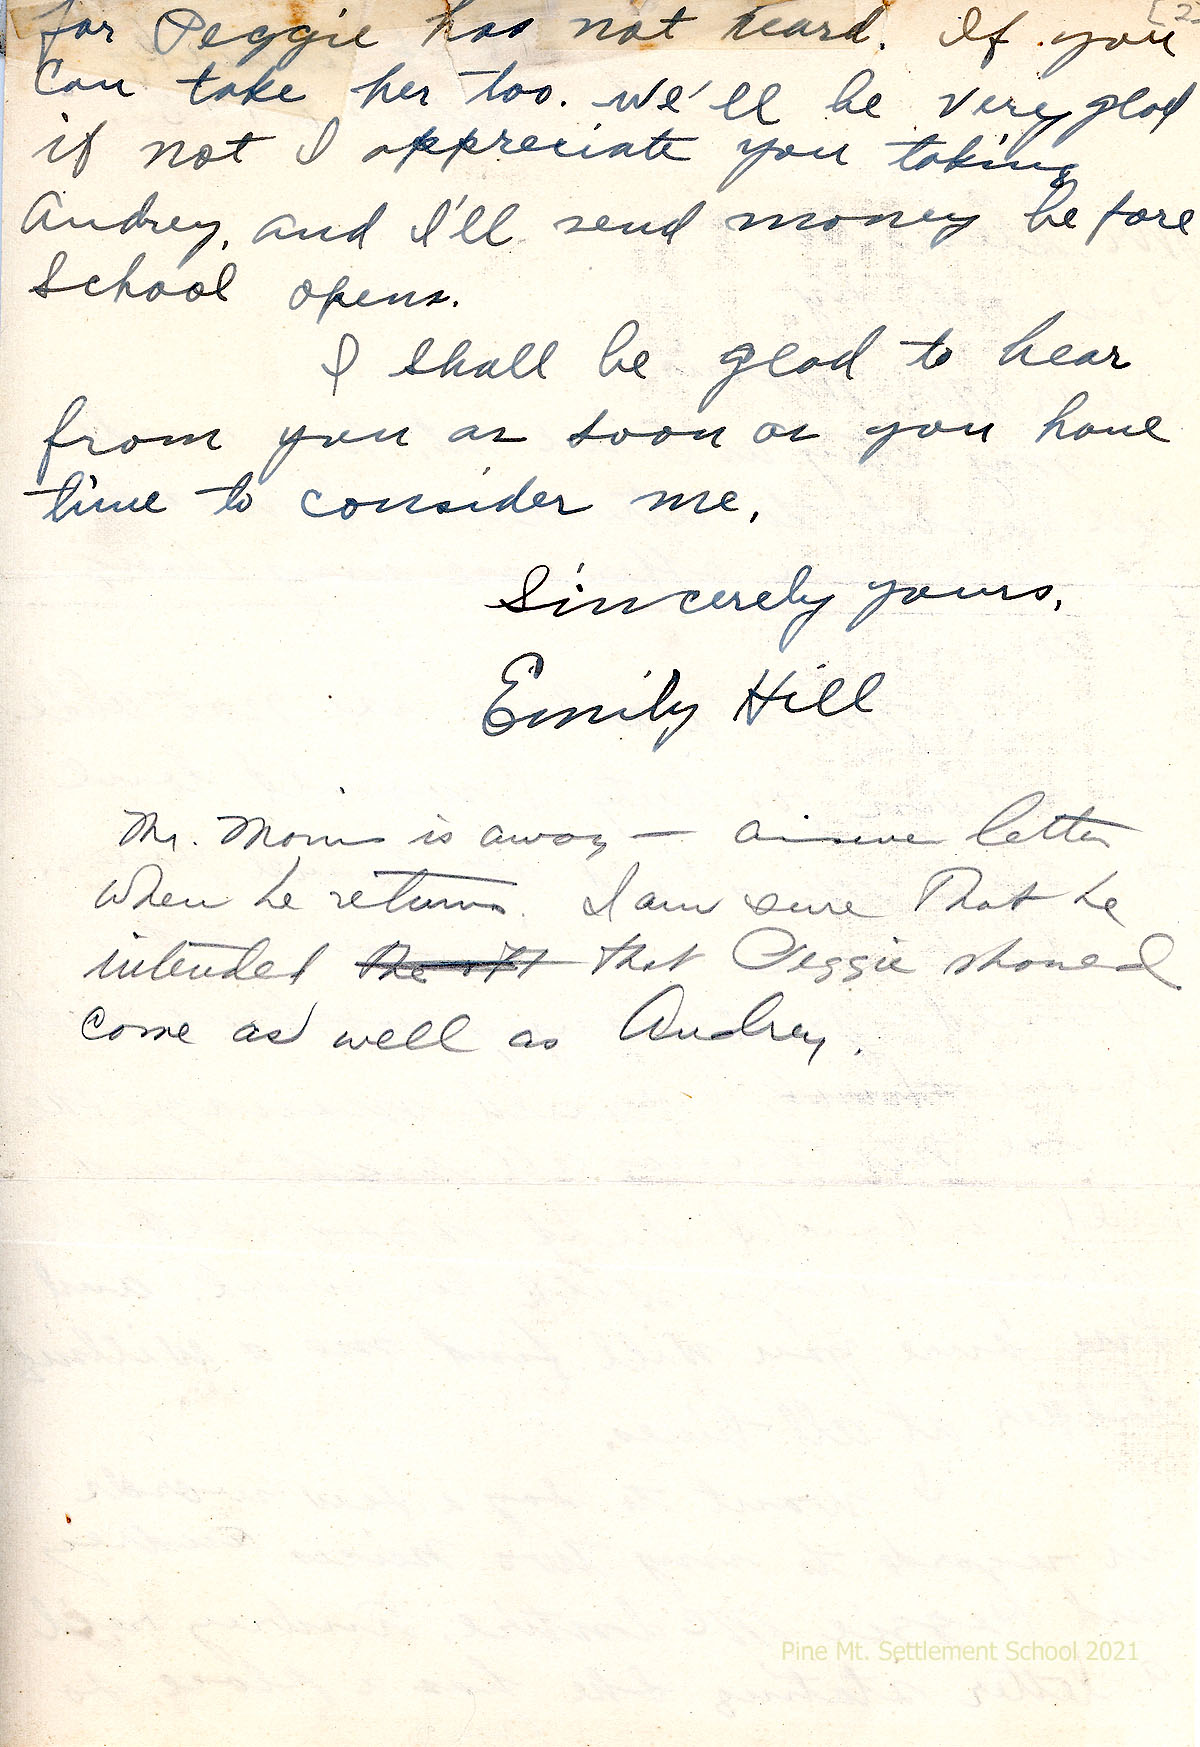 [2
for Peggie has not heard. If you
can take her too. We'll be very glad
if not I appreciate you taking
Audrey, and I'll send money before
School opens.
I shall be glad to hear
from you as soon as you have
time to consider me.
Sincerely yours,
Emily Hill
Mr. Morris is away — answer letter
when he returns. I am sure that he
intended that Peggie should
come as well as Audrey.
Pine Mt. Settlement School 2021